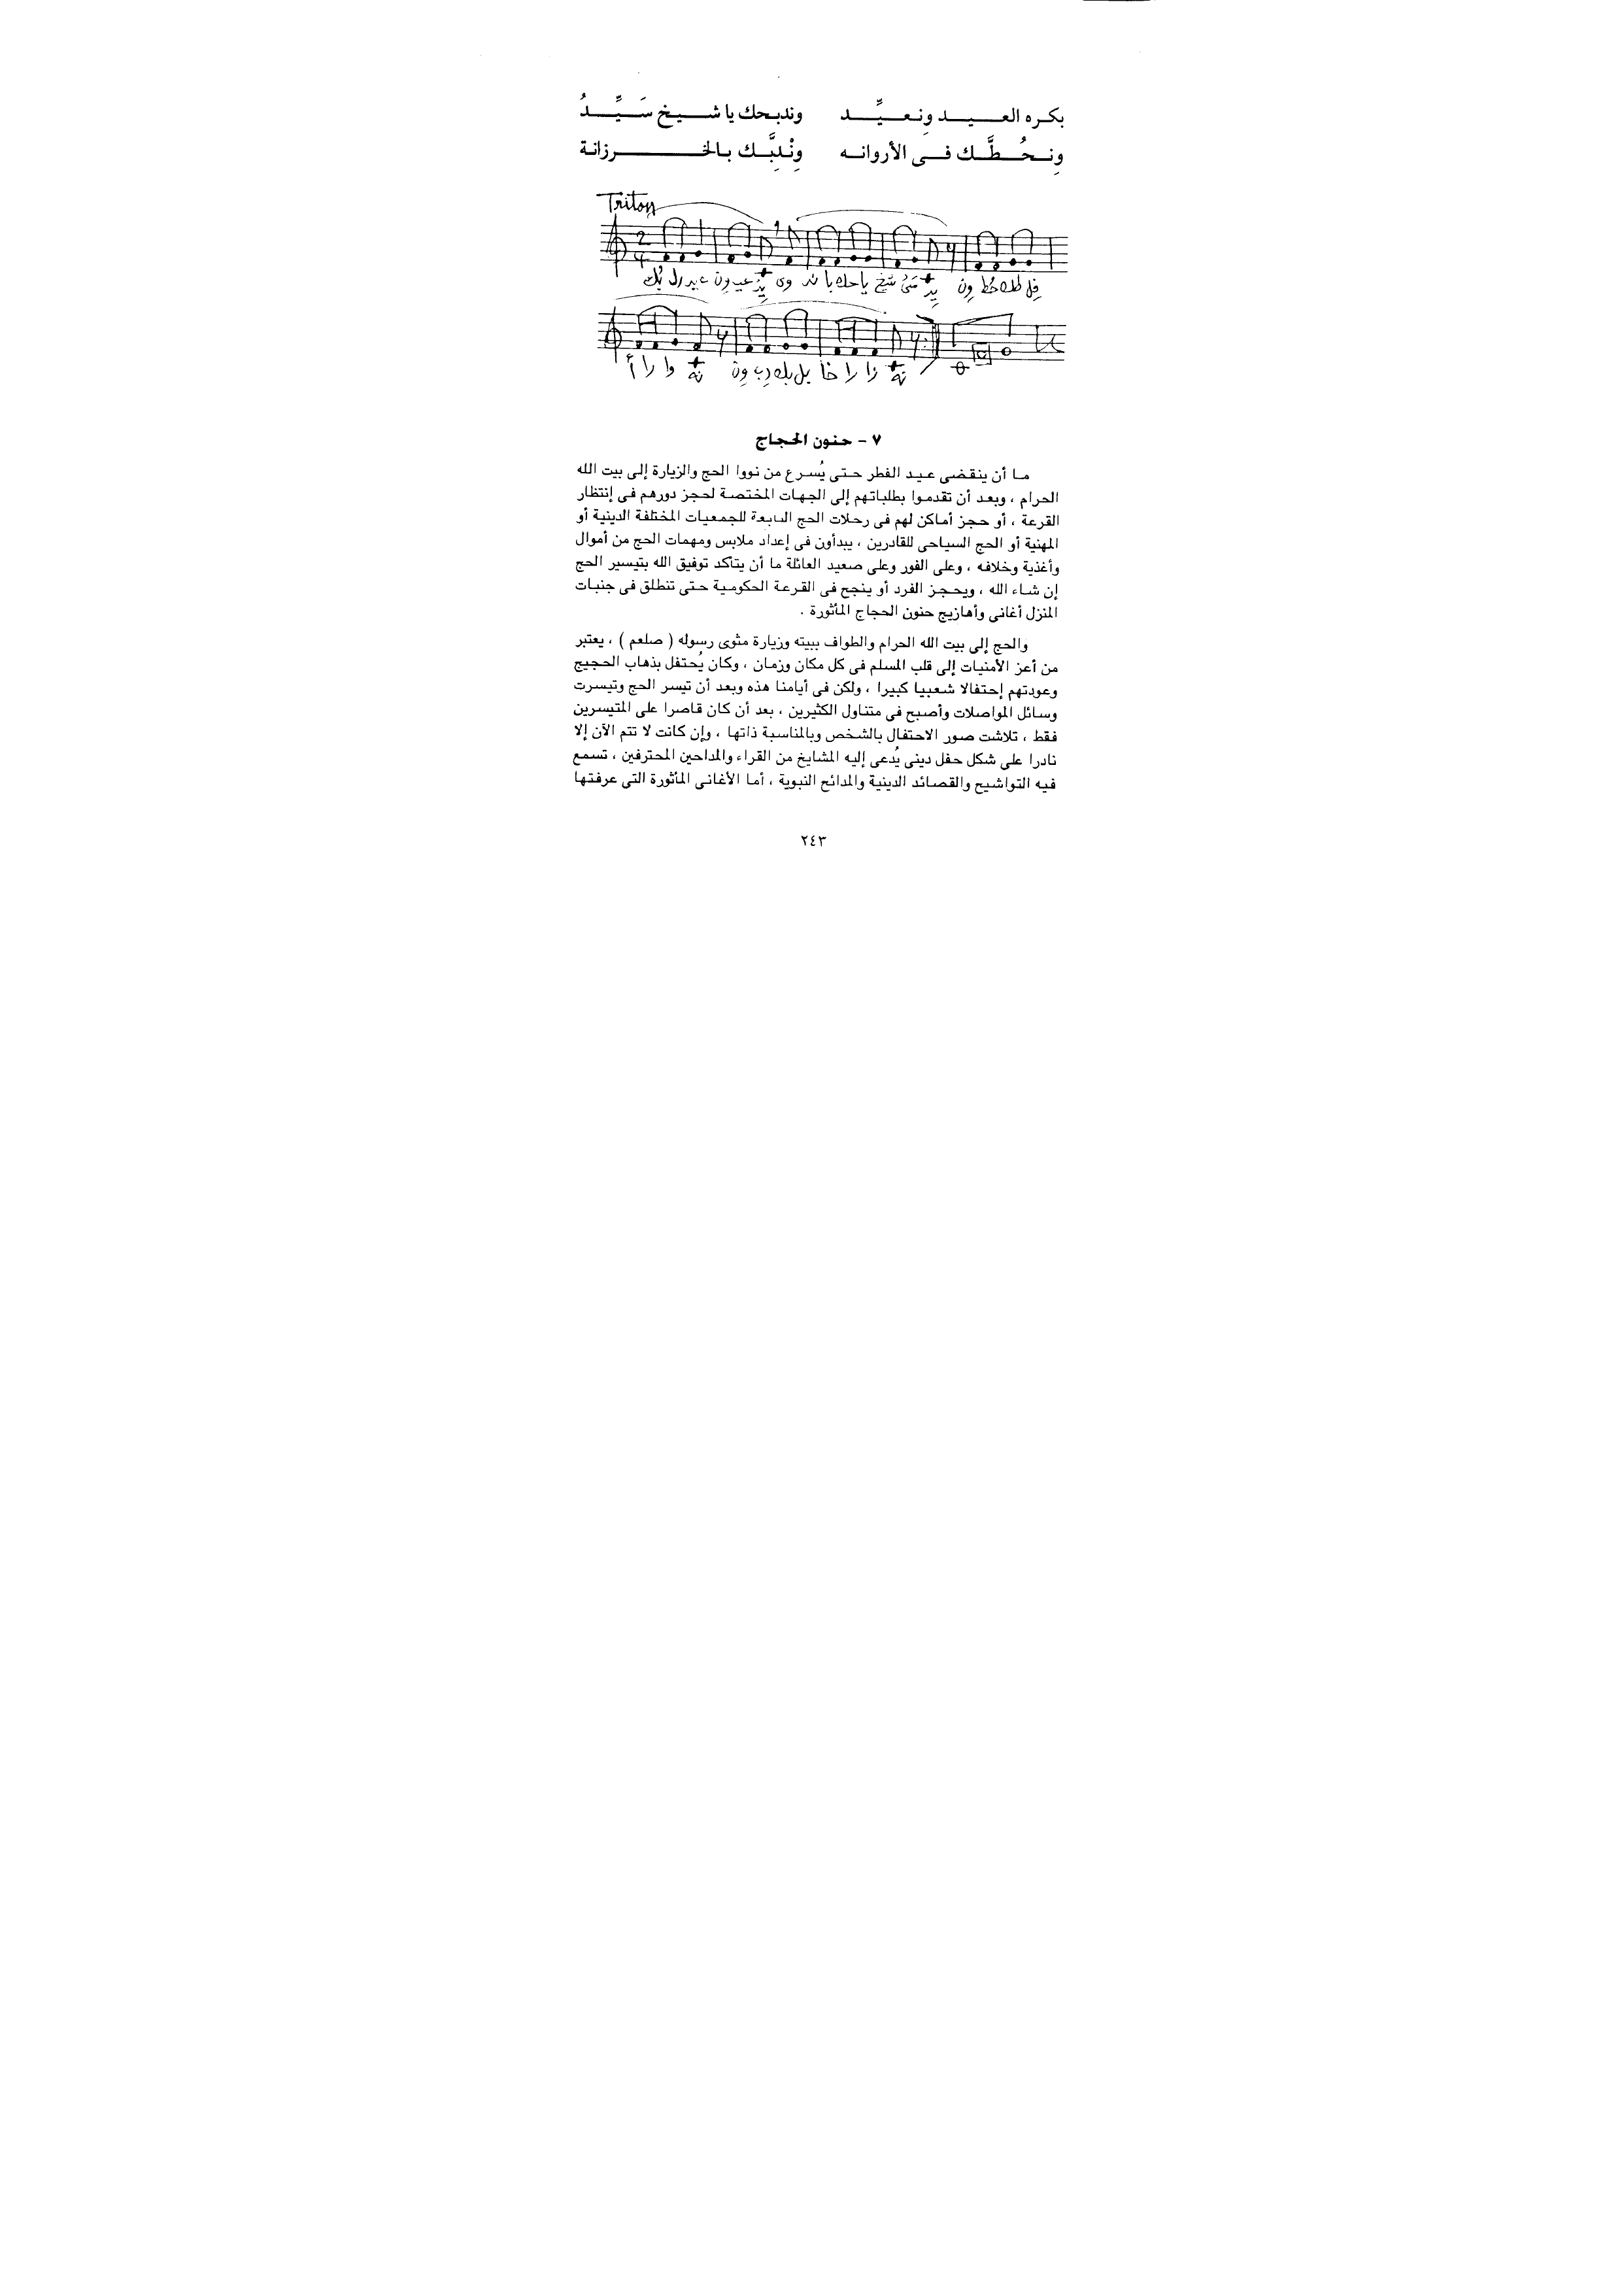 بكره العيد ونعيِّد وندبحك يا شيخ سَيِّدُ
ونحُطَّك فى الأروانه ونْلبَّك بالخرزانة
Triton
٧ - حنون الحجاج
ما أن ينقضى عيد الفطر حتى يُسرع من نووا الحج والزيارة إلى بيت الله
الحرام ، وبعد أن تقدموا بطلباتهم إلى الجهات المختصة لحجز دورهم فى إنتظار
القرعة ، أو حجز أماكن لهم فى رحلات الحج التابعة للجمعيات المختلفة الدينية أو
المهنية أو الحج السياحى للقادرين ، يبدأون فى إعداد ملابس ومهمات الحج من أموال
وأغذية وخلافه ، وعلى الفور وعلى صعيد العائلة ما أن يتأكد توفيق الله بتيسير الحج
إن شاء الله ، ويحجز الفرد أو ينجح فى القرعة الحكومية حتى تنطلق فى جنبات
المنزل أغانى وأهازيج حنون الحجاج المأثورة .
والحج إلى بيت الله الحرام والطواف ببيته وزيارة مثوى رسوله ( صلعم ) ، يعتبر
من أعز الأمنيات إلى قلب المسلم فى كل مكان وزمان ، وكان يُحتفل بذهاب الحجيج
وعودتهم إحتفالا شعبيا كبيرا ، ولكن فى أيامنا هذه وبعد أن تيسر الحج وتيسرت
وسائل المواصلات وأصبح فى متناول الكثيرين ، بعد أن كان قاصرا على المتيسرين
فقط ، تلاشت صور الاحتفال بالشخص وبالمناسبة ذاتها ، وإن كانت لا تتم الآن إلا
نادرا على شكل حفل دينى يُدعى إليه المشايخ من القراء والمداحين المحترفين ، تسمع
فيه التواشيح والقصائد الدينية والمدائح النبوية ، أما الأغانى المأثورة التى عرفتها
٢٤٣